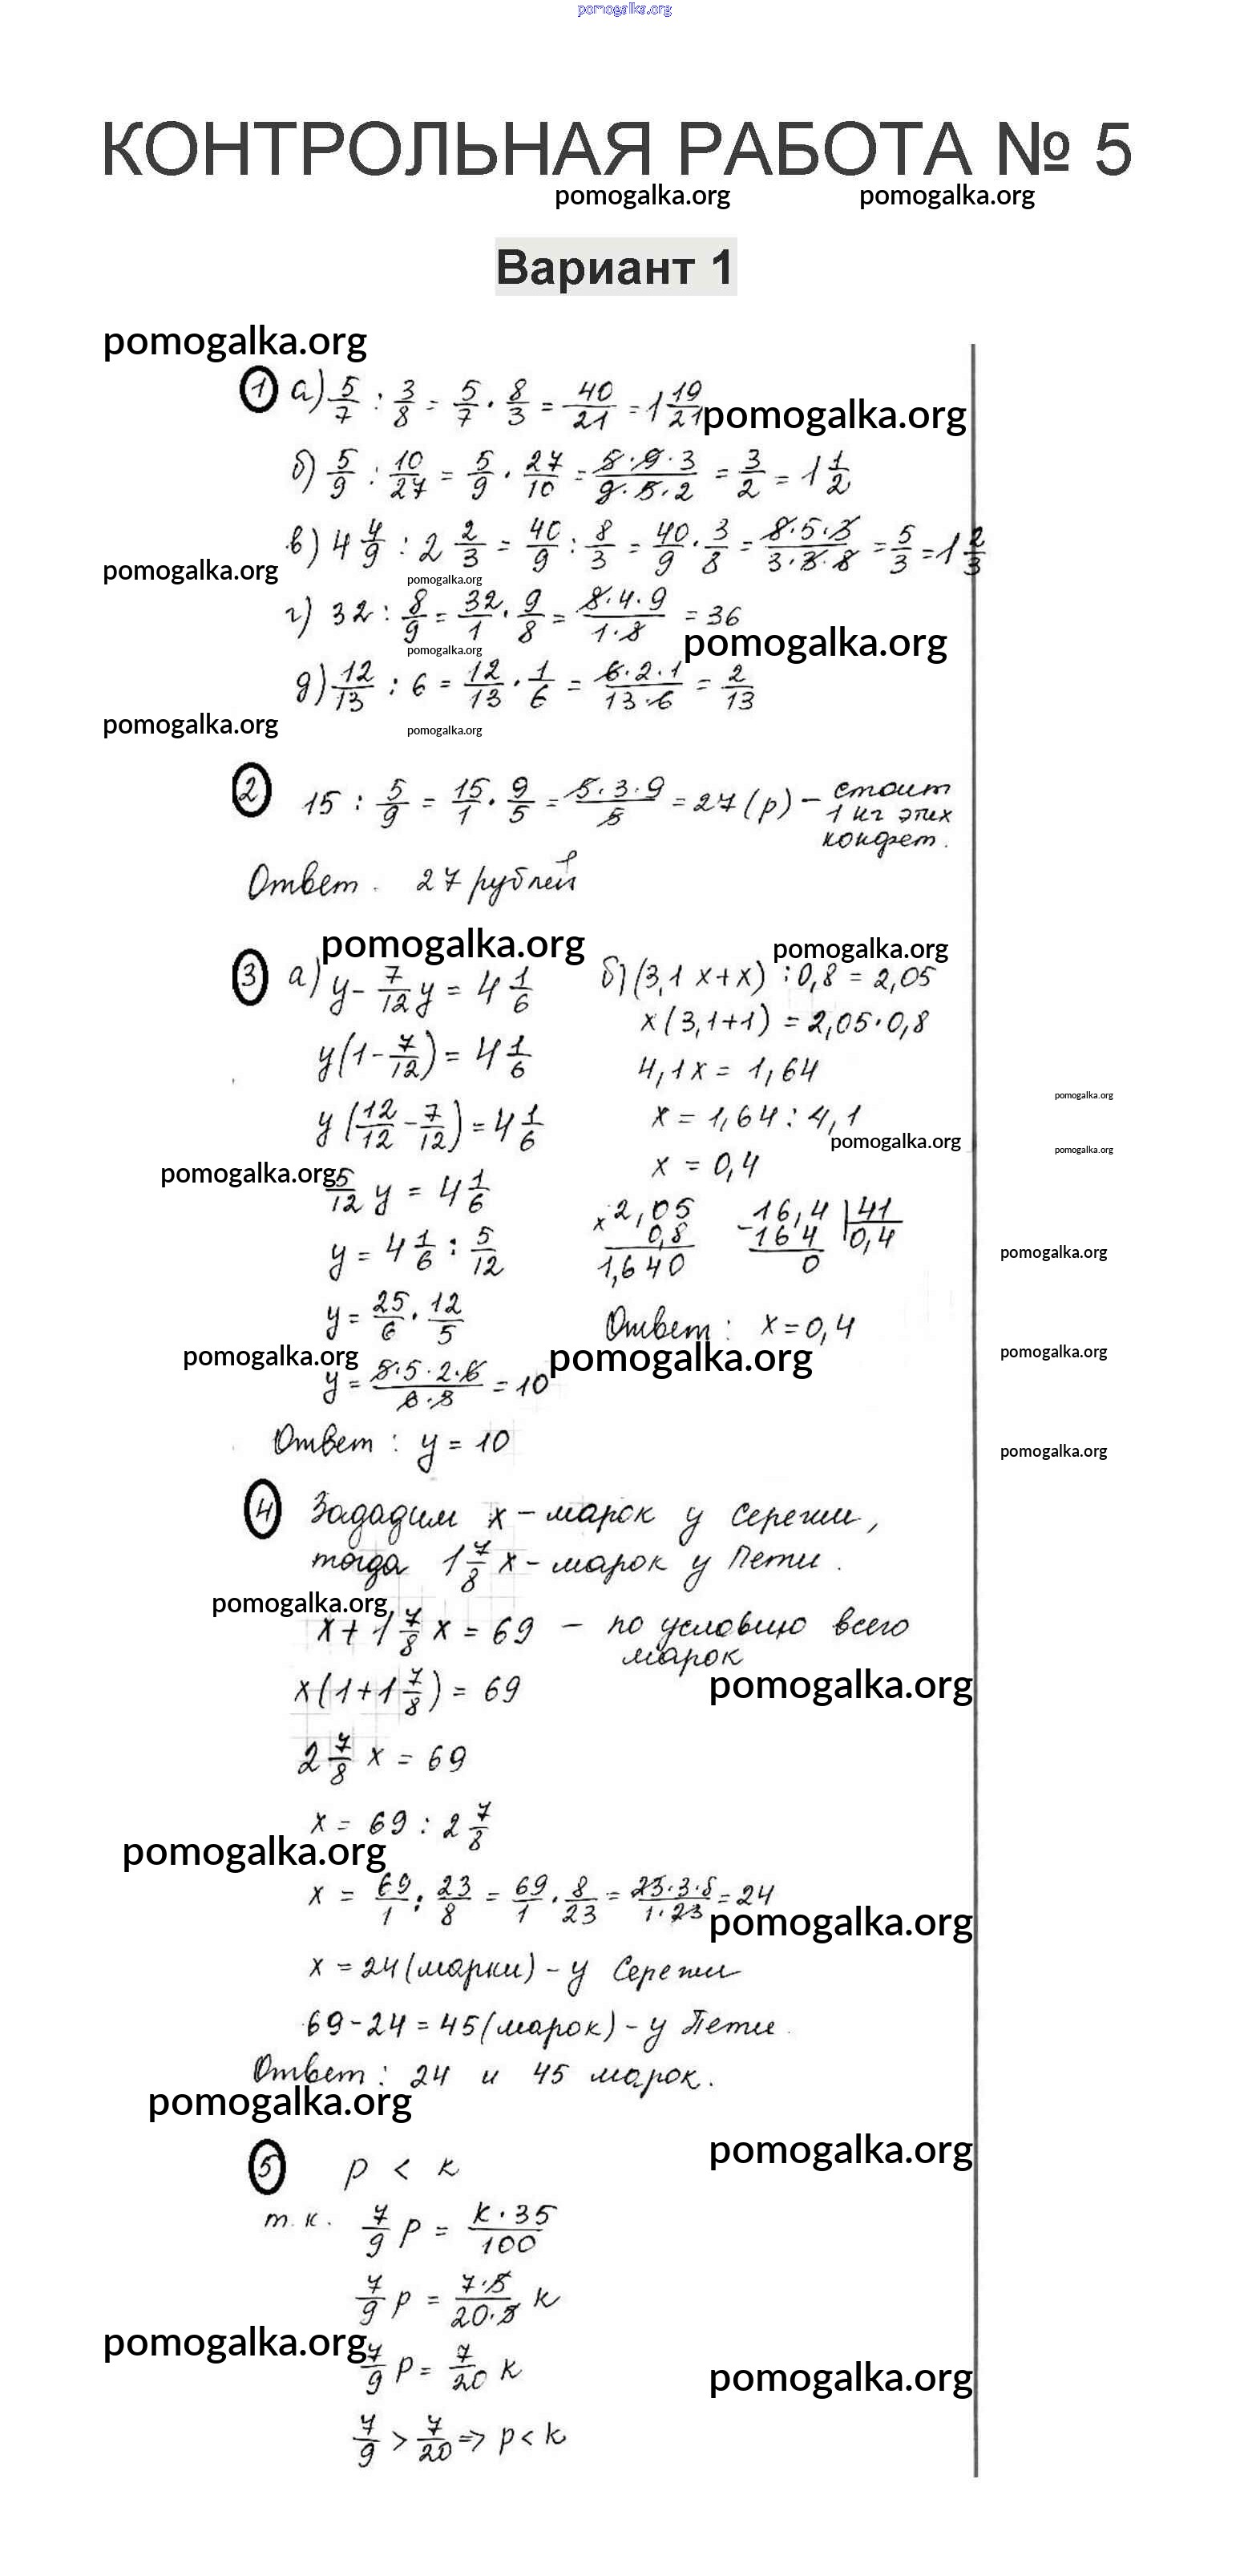 pomogalka.org
КОНТРОЛЬНАЯ РАБОТА № 5
pomogalka.org pomogalka.org
Вариант 1
pomogalka.org
1 а) 5/7 : 3/8 = 5/7 · 8/3 = 40/21 = 1 19/21
pomogalka.org
б) 5/9 : 10/27 = 5/9 · 27/10 = 5·9·3/9·5·2 = 3/2 = 1 1/2
в) 4 4/9 : 2 2/3 = 40/9 : 8/3 = 40/9 · 3/8 = 8·5·3/3·3·8 = 5/3 = 1 2/3
pomogalka.org pomogalka.org
г) 32 : 8/9 = 32/1 · 9/8 = 8·4·9/1·8 = 36
pomogalka.org pomogalka.org
д) 12/13 : 6 = 12/13 · 1/6 = 6·2·1/13·6 = 2/13
pomogalka.org pomogalka.org
2 15 : 5/9 = 15/1 · 9/5 = 5·3·9/5 = 27 (р) – стоит
1 кг этих
конфет.
Ответ. 27 рублей
pomogalka.org pomogalka.org
3 а) y - 7/12 y = 4 1/6
y(1 - 7/12) = 4 1/6
y(12/12 - 7/12) = 4 1/6
pomogalka.org
5/12 y = 4 1/6
y = 4 1/6 : 5/12
y = 25/6 · 12/5
pomogalka.org
y = 5·5·2·6/6·5 = 10
Ответ : y = 10
б) (3,1 x + x) : 0,8 = 2,05
x (3,1+1) = 2,05·0,8
4,1x = 1,64
x = 1,64 : 4,1
pomogalka.org
x = 0,4
x 2,05
0,8
1,640
- 16,4 | 41
164 | 0,4
0
Ответ : x = 0,4
pomogalka.org
pomogalka.org
pomogalka.org
pomogalka.org
pomogalka.org
pomogalka.org
4 Зададим x – марок у Сережи,
тогда 1 7/8 x – марок у Пети.
pomogalka.org
x + 1 7/8 x = 69 – по условию всего
марок
pomogalka.org
x(1 + 1 7/8) = 69
2 7/8 x = 69
x = 69 : 2 7/8
pomogalka.org
x = 69/1 : 23/8 = 69/1 · 8/23 = 23·3·8/1·23 = 24
pomogalka.org
x = 24 (марки) – у Сережи
69 - 24 = 45 (марок) – у Пети.
Ответ : 24 и 45 марок.
pomogalka.org
pomogalka.org
5 p < k
т.к. 7/9 p = k·35/100
7/9 p = 7·5/20·5 k
pomogalka.org
7/9 p = 7/20 k
pomogalka.org
7/9 > 7/20 => p < k